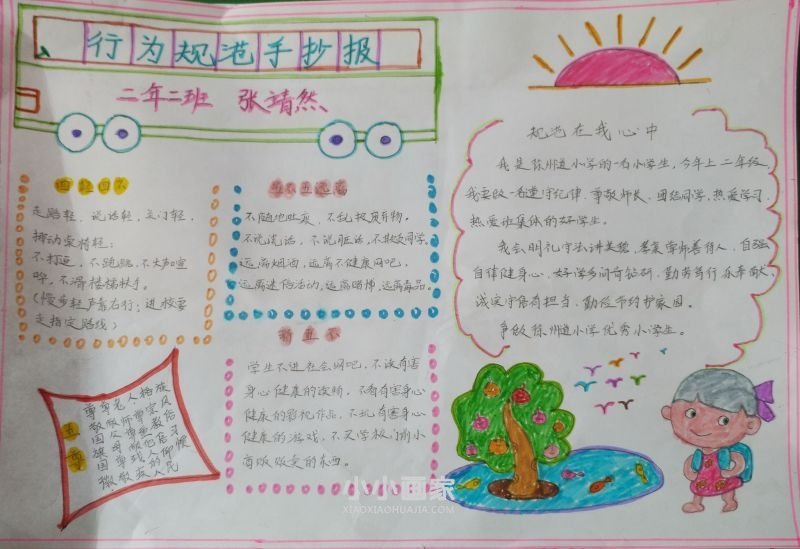 行为规范手抄报
二年二班 张靖然
四轻四不
走路轻，说话轻，关门轻，
挪动桌椅轻；
不打逗，不跑跳，不大声喧
哗，不滑楼梯扶手。
（慢步轻声靠右行；进校要
走指定路线）
五不五远离
不随地吐痰，不乱扔废弃物。
不说谎话，不说脏话，不欺负同学。
远离烟酒，远离不健康网吧，
远离迷信活动，远离赌博，远离毒品。
不进社会网吧，不读有害
身心健康的读物，不看有害身心
健康的影视作品，不玩有害身心
健康的游戏，不买学校门前小
商贩贩卖的东西。
五尊
规范在我心中
我是徐州道小学的一名小学生，今年上二年级，
我要做一名遵守纪律、尊敬师长、团结同学、热爱学习、
热爱班集体的好学生。
我会明礼守法讲美德，孝亲尊师善待人，自强
自律健身心，好学多问肯钻研，勤劳笃行乐奉献，
诚实守信有担当，勤俭节约护家园。
争做徐州道小学优秀小学生。
小小画家
XIAOXIAOHUAJIA.COM